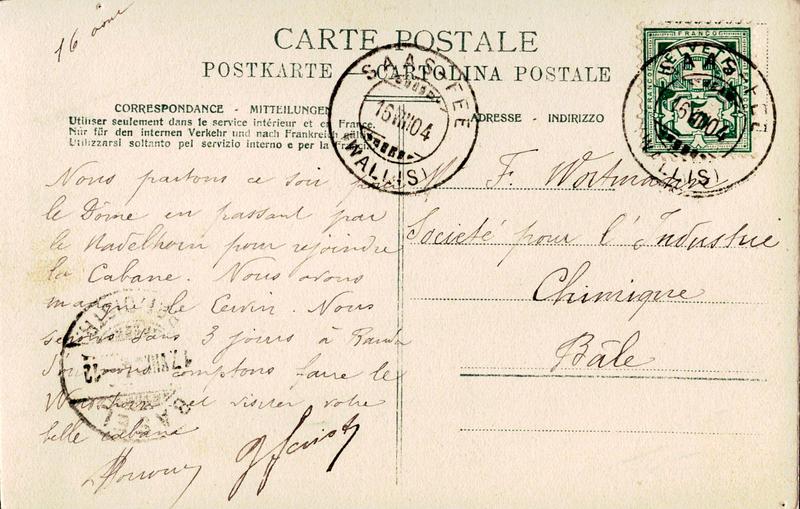 16 août
CARTE POSTALE
POSTKARTE CARTOLINA POSTALE
CORRESPONDANCE - MITTEILUNGEN
Utiliser seulement dans le service intérieur et en France.
Nur für den internen Verkehr und nach Frankreich
Utilizzarsi soltanto pel servizio interno e per la
ADRESSE - INDIRIZZO
SAAS-FEE
16 VIII 04
(WALLIS)
HELVETIA
FRANCO
SAAS-FEE
16 VIII 04
(WALLIS)
Nous partons ce soir pour
le Dôme en passant par
le Nadelhorn pour rejoindre
la Cabane. Nous avons
manqué le Cervin. Nous
serons dans 3 jours à Randa
comptons faire le
et visiter votre
belle cabane
M. F. Wortmann
Societé pour l'Industrie
Chimique
Bâle